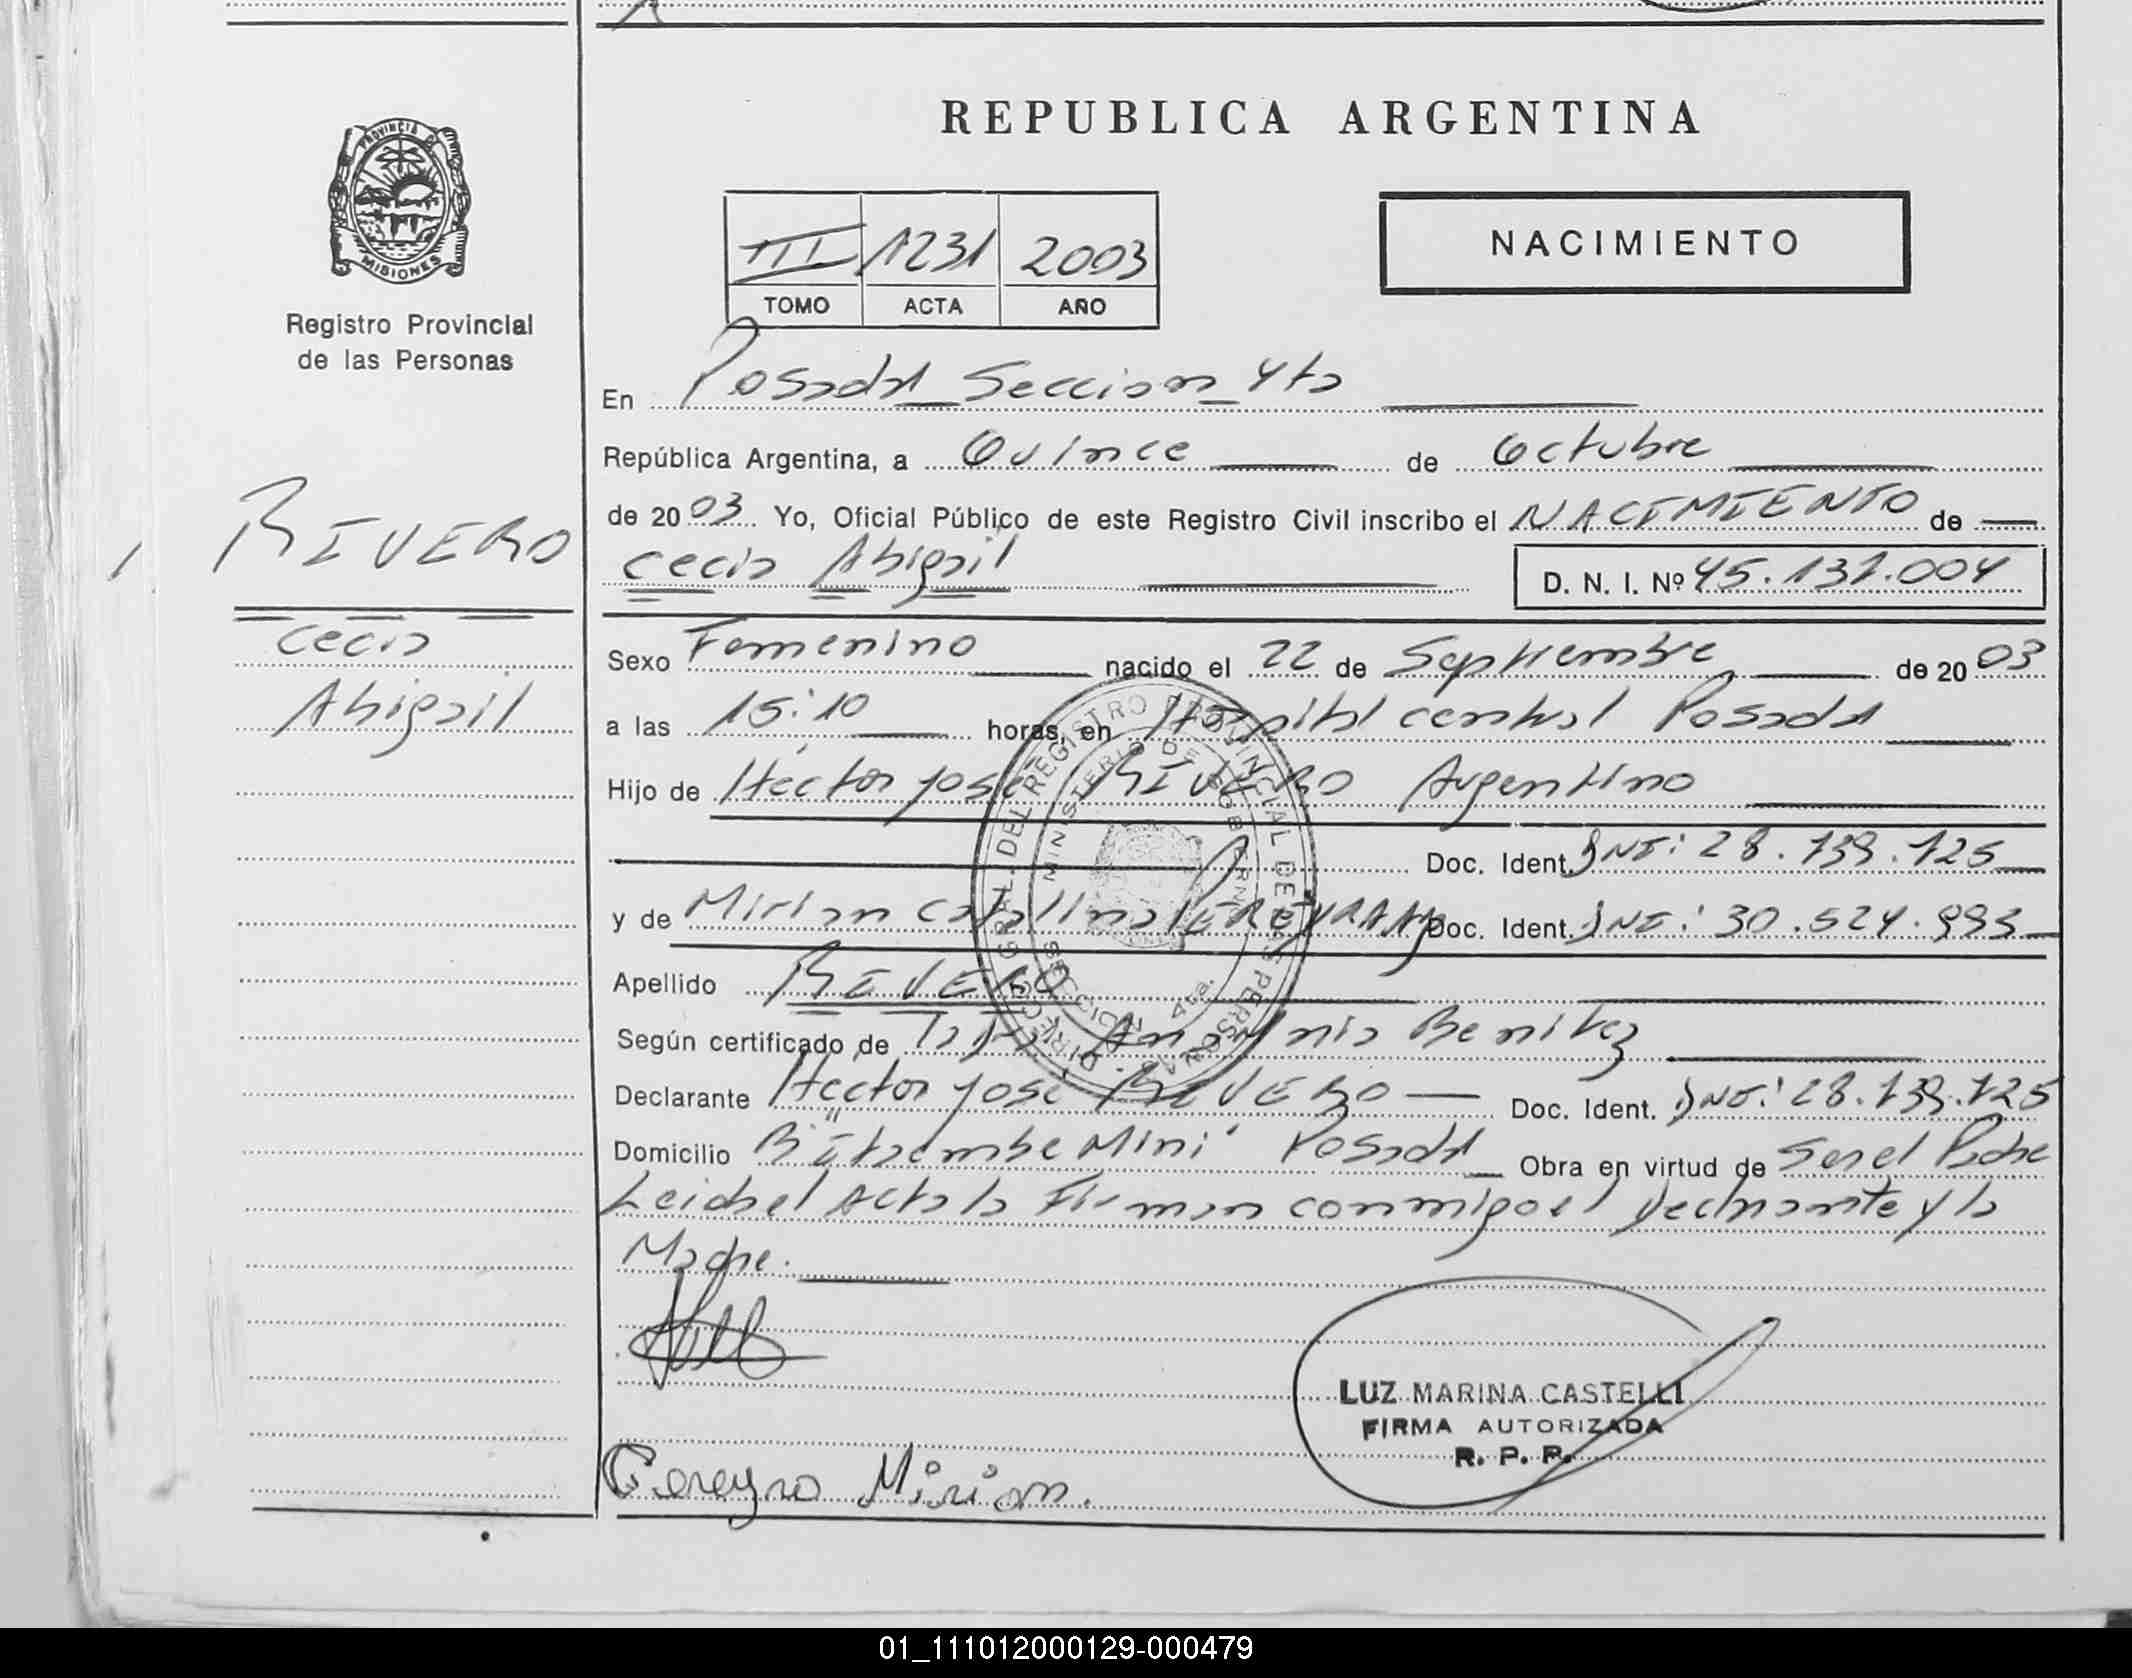 REPUBLICA ARGENTINA
PROVINCIA DE
MISIONES
Registro Provincial
de las Personas
III 1231 2003
TOMO ACTA AÑO
NACIMIENTO
En Posadas Seccion 4ta
República Argentina, a Quince de Octubre
de 2003 Yo, Oficial Público de este Registro Civil inscribo el NACIMIENTO de
RIVERO
Cecia Abigail D. N. I. Nº 45.131.004
Cecia
Abigail
Sexo Femenino nacido el 22 de Septiembre de 2003
a las 15:10 horas, en Hospital central Posadas
Hijo de Héctor José RIVERO Argentino
Doc. Ident. DNI: 28.139.125
y de Mirian Catalina PEREYRA Doc. Ident. DNI: 30.524.993
Apellido RIVERO
Según certificado de Benitez
Declarante Héctor José RIVERO Doc. Ident. DNI: 28.139.125
Domicilio Bº "Itaembe Mini" Posadas Obra en virtud de Ser el Padre
Leida el Acta la Firman conmigo el Declarante y la
Madre.
DIREC. GRAL. DEL REGISTRO PROVINCIAL DE LAS PERSONAS
MINISTERIO DE GOBIERNO
SECCION 4ta.
LUZ MARINA CASTELLI
FIRMA AUTORIZADA
R. P. P.
Pereyra Mirian.
01_111012000129-000479